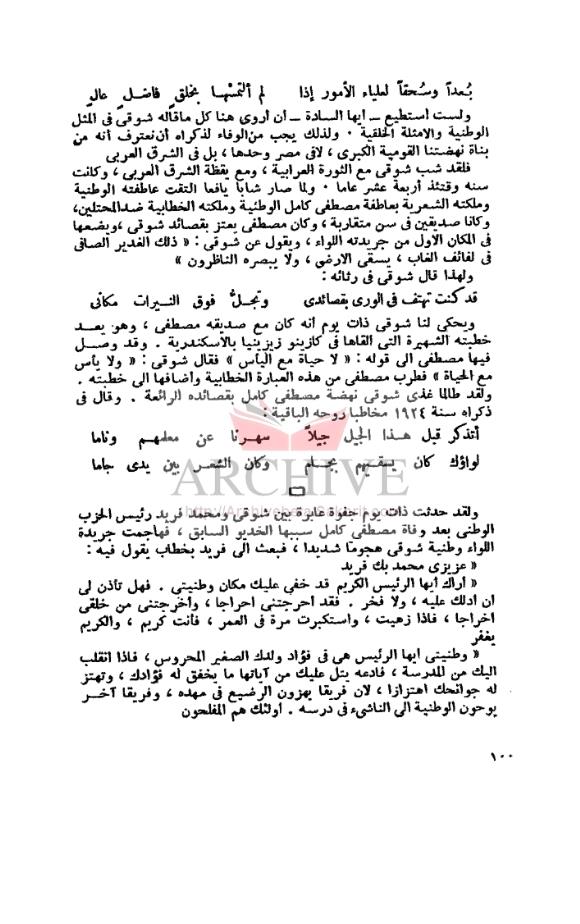 بُعداً وسُحقاً لعلياء الأمور إذا لم ألتمسْها بخلقٍ فاضلٍ عالٍ
ولست استطيع ــ أيها السادة ــ أن أروى هنا كل ماقاله شوقى فى المثل
الوطنية والامثلة الخلقية . ولذلك يجب من الوفاء لذكراه أن نعترف أنه من
بناة نهضتنا القومية الكبرى ، لافى مصر وحدها ، بل فى الشرق العربى
فلقد شب شوقى مع الثورة العرابية ، ومع يقظة الشرق العربى ، وكانت
سنه وقتئذ أربعة عشر عاما . ولما صار شابا يافعا التقت عاطفته الوطنية
وملكته الشعرية بعاطفة مصطفى كامل الوطنية وملكته الخطابية ضدالمحتلين،
وكانا صديقين فى سن متقاربة ، وكان مصطفى يعتز بقصائد شوقى ،ويضعها
فى المكان الاول من جريدته اللواء ، ويقول عن شوقى : « ذلك الغدير الصافى
فى لفائف الغاب ، يسقى الارض ، ولا يبصره الناظرون »
ولهذا قال شوقى فى رثائه :
قد كنت تهتف فى الورى بقصائدى وتجلُّ فوق النيرات مكانى
ويحكى لنا شوقى ذات يوم أنه كان مع صديقه مصطفى ، وهو يعد
خطبته الشهيرة التى القاها فى كازينو زيزينيا بالاسكندرية . وقد وصل
فيها مصطفى الى قوله : « لا حياة مع اليأس » فقال شوقى : « ولا يأس
مع الحياة » فطرب مصطفى من هذه العبارة الخطابية وأضافها الى خطبته .
ولقد طالما غذى شوقى نهضة مصطفى كامل بقصائده الرائعة . وقال فى
ذكراه سنة ١٩٢٤ مخاطبا روحه الباقية :
أتذكر قبل هذا الجيل جيلاً سهرنا عن معلمهم وناما
لواؤك كان يسقيهم بجام وكان الشعر بين يدى جاما
ARCHIVE
ولقد حدثت ذات يوم جفوة عابرة بين شوقى ومحمد فريد رئيس الحزب
الوطنى بعد وفاة مصطفى كامل سببها الخديو السابق ، فهاجمت جريدة
اللواء وطنية شوقى هجوما شديدا ، فبعث الى فريد بخطاب يقول فيه :
« عزيزى محمد بك فريد
« أراك أيها الرئيس الكريم قد خفى عليك مكان وطنيتى . فهل تأذن لى
ان ادلك عليه ، ولا فخر . فقد أحرجتنى احراجا ، وأخرجتنى من خلقى
اخراجا ، فاذا زهيت ، واستكبرت مرة فى العمر ، فأنت كريم ، والكريم
يغفر
« وطنيتى أيها الرئيس هى فى فؤاد ولدك الصغير المحروس ، فاذا انقلب
اليك من المدرسة ، فادعه يتل عليك من آياتها ما يخفق له فؤادك ، وتهتز
له جوانحك اهتزازا ، لان فريقا يهزون الرضيع فى مهده ، وفريقا آخر
يوحون الوطنية الى الناشىء فى درسه . أولئك هم المفلحون
١٠٠